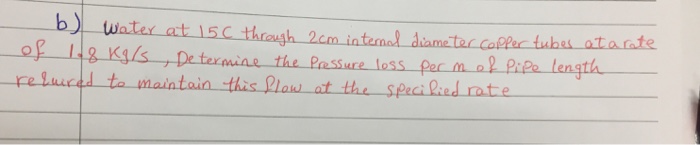 b) Water at 15C through 2cm internal diameter copper tubes at a rate
of 1.8 Kg/s, Determine the Pressure loss per m of Pipe length
reluired to maintain this flow at the specified rate